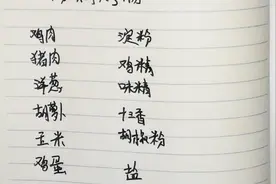 鸡肉 淀粉
猪肉 鸡精
洋葱 味精
胡萝卜 十三香
玉米 胡椒粉
鸡蛋 盐